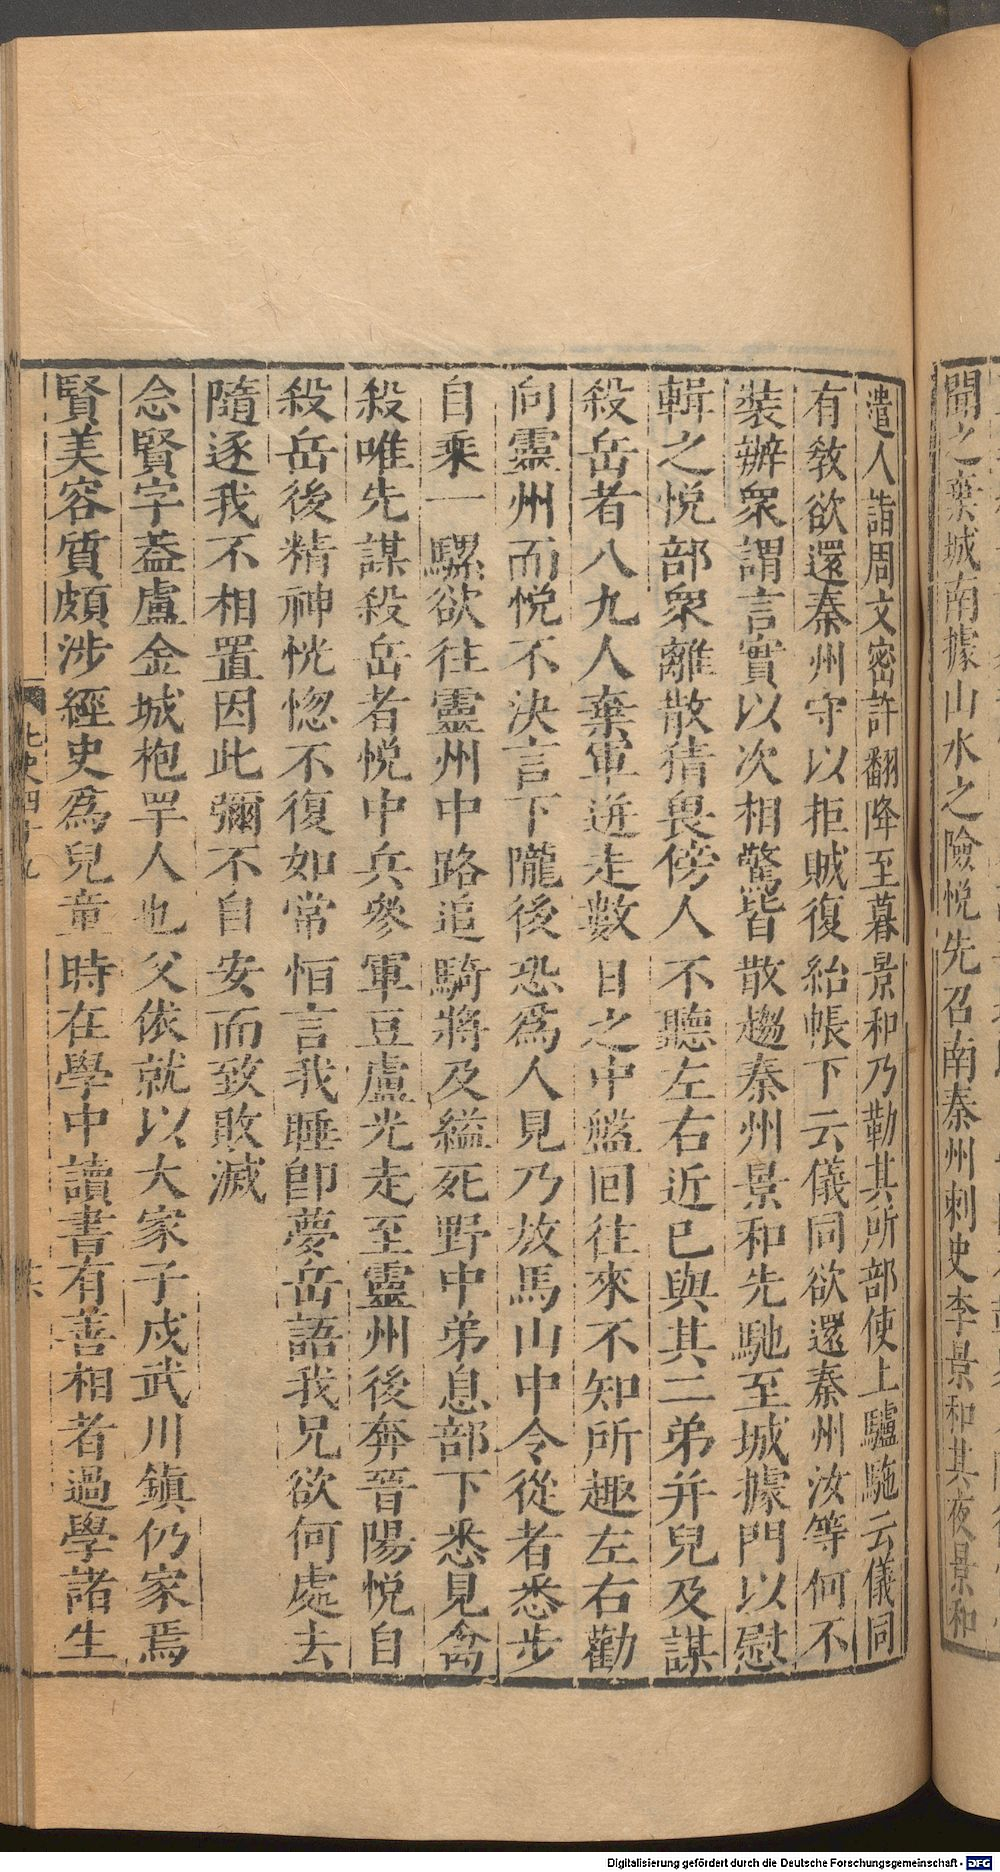 聞之棄城南據山水之險悅先召南秦州刺史李景和其夜景和
遣人詣周文密許翻降至暮景和乃勒其所部使上驢駞云儀同
有敎欲還秦州守以拒賊復紿帳下云儀同欲還秦州汝等何不
裝辦衆謂言實以次相驚皆散趨秦州景和先馳至城據門以慰
輯之悅部衆離散猜畏傍人不聽左右近已與其二弟并兒及謀
殺岳者八九人棄軍迸走數日之中盤回往來不知所趣左右勸
向靈州而悅不決言下隴後恐爲人見乃放馬山中令從者悉步
自乘一騾欲往靈州中路追騎將及縊死野中弟息部下悉見禽
殺唯先謀殺岳者悅中兵參軍豆盧光走至靈州後奔晉陽悅自
殺岳後精神恍惚不復如常恒言我睡卽夢岳語我兄欲何處去
隨逐我不相置因此彌不自安而致敗滅
念賢字葢盧金城枹罕人也父依就以大家子戍武川鎮仍家焉
賢美容質頗涉經史爲兒童時在學中讀書有善相者過學諸生
北史四十九
Digitalisierung gefördert durch die Deutsche Forschungsgemeinschaft - DFG